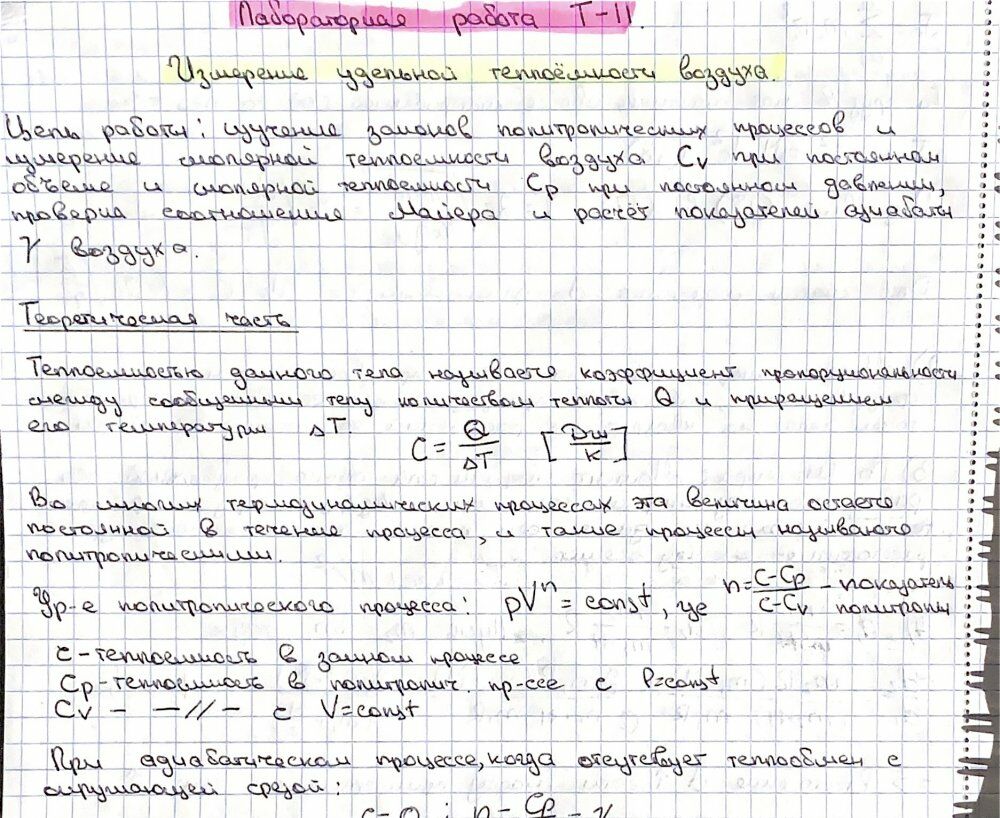 Лабораторная работа Т-11.
Измерение удельной теплоёмкости воздуха.
Цель работы: изучение законов политропических процессов и
измерение молярной теплоемкости воздуха Cv при постоянном
объеме и молярной теплоемкости Cp при постоянном давлении,
проверка соотношения Майера и расчёт показателей адиабаты
γ воздуха.
Теоретическая часть
Теплоемкостью данного тела называется коэффициент пропорциональности
между сообщенными телу количеством теплоты Q и приращением
его температуры ΔT.
C = Q/ΔT [Дж/К]
Во многих термодинамических процессах эта величина остается
постоянной в течение процесса, и такие процессы называются
политропическими.
Ур-е политропического процесса: pVⁿ = const, где n = C-Cp/C-Cv - показатель политропы
c - теплоемкость в данном процессе
Cp - теплоемкость в политропич. пр-ссе с P=const
Cv - —//— с V=const
При адиабатическом процессе, когда отсутствует теплообмен с
окружающей средой:
c=0; n = Cp = γ